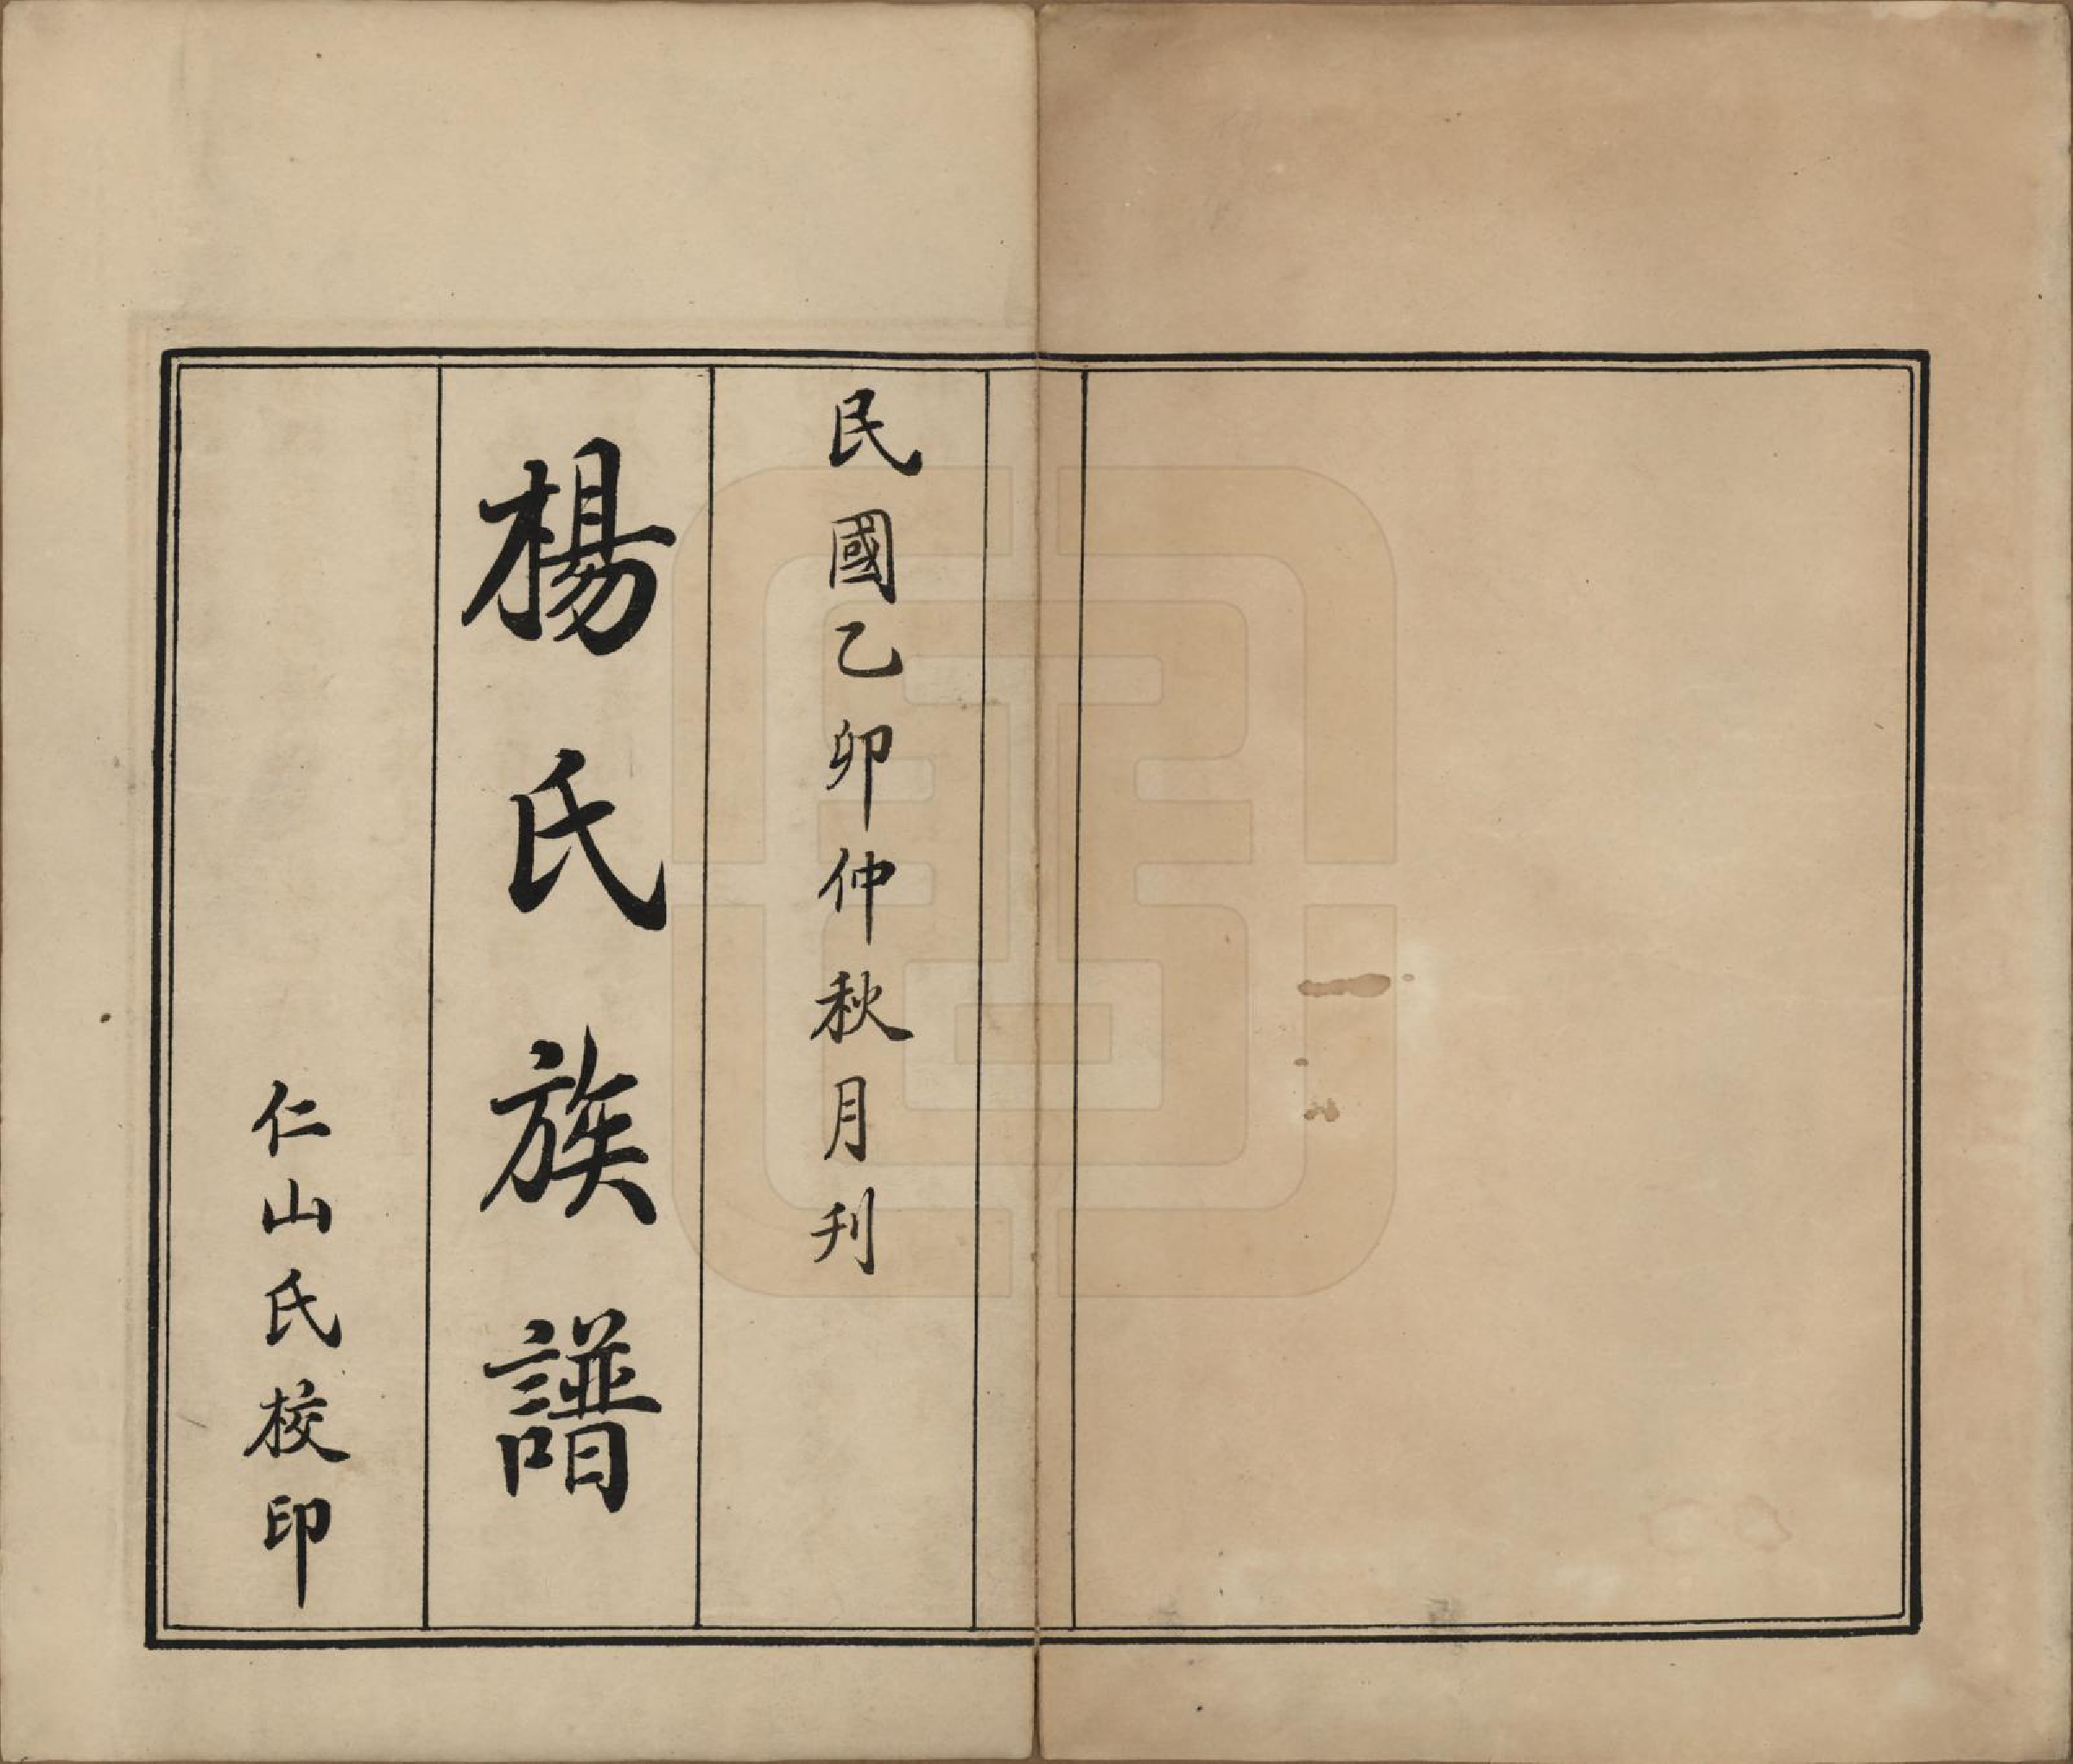 民國乙卯仲秋月刊
楊氏族譜
仁山氏校印